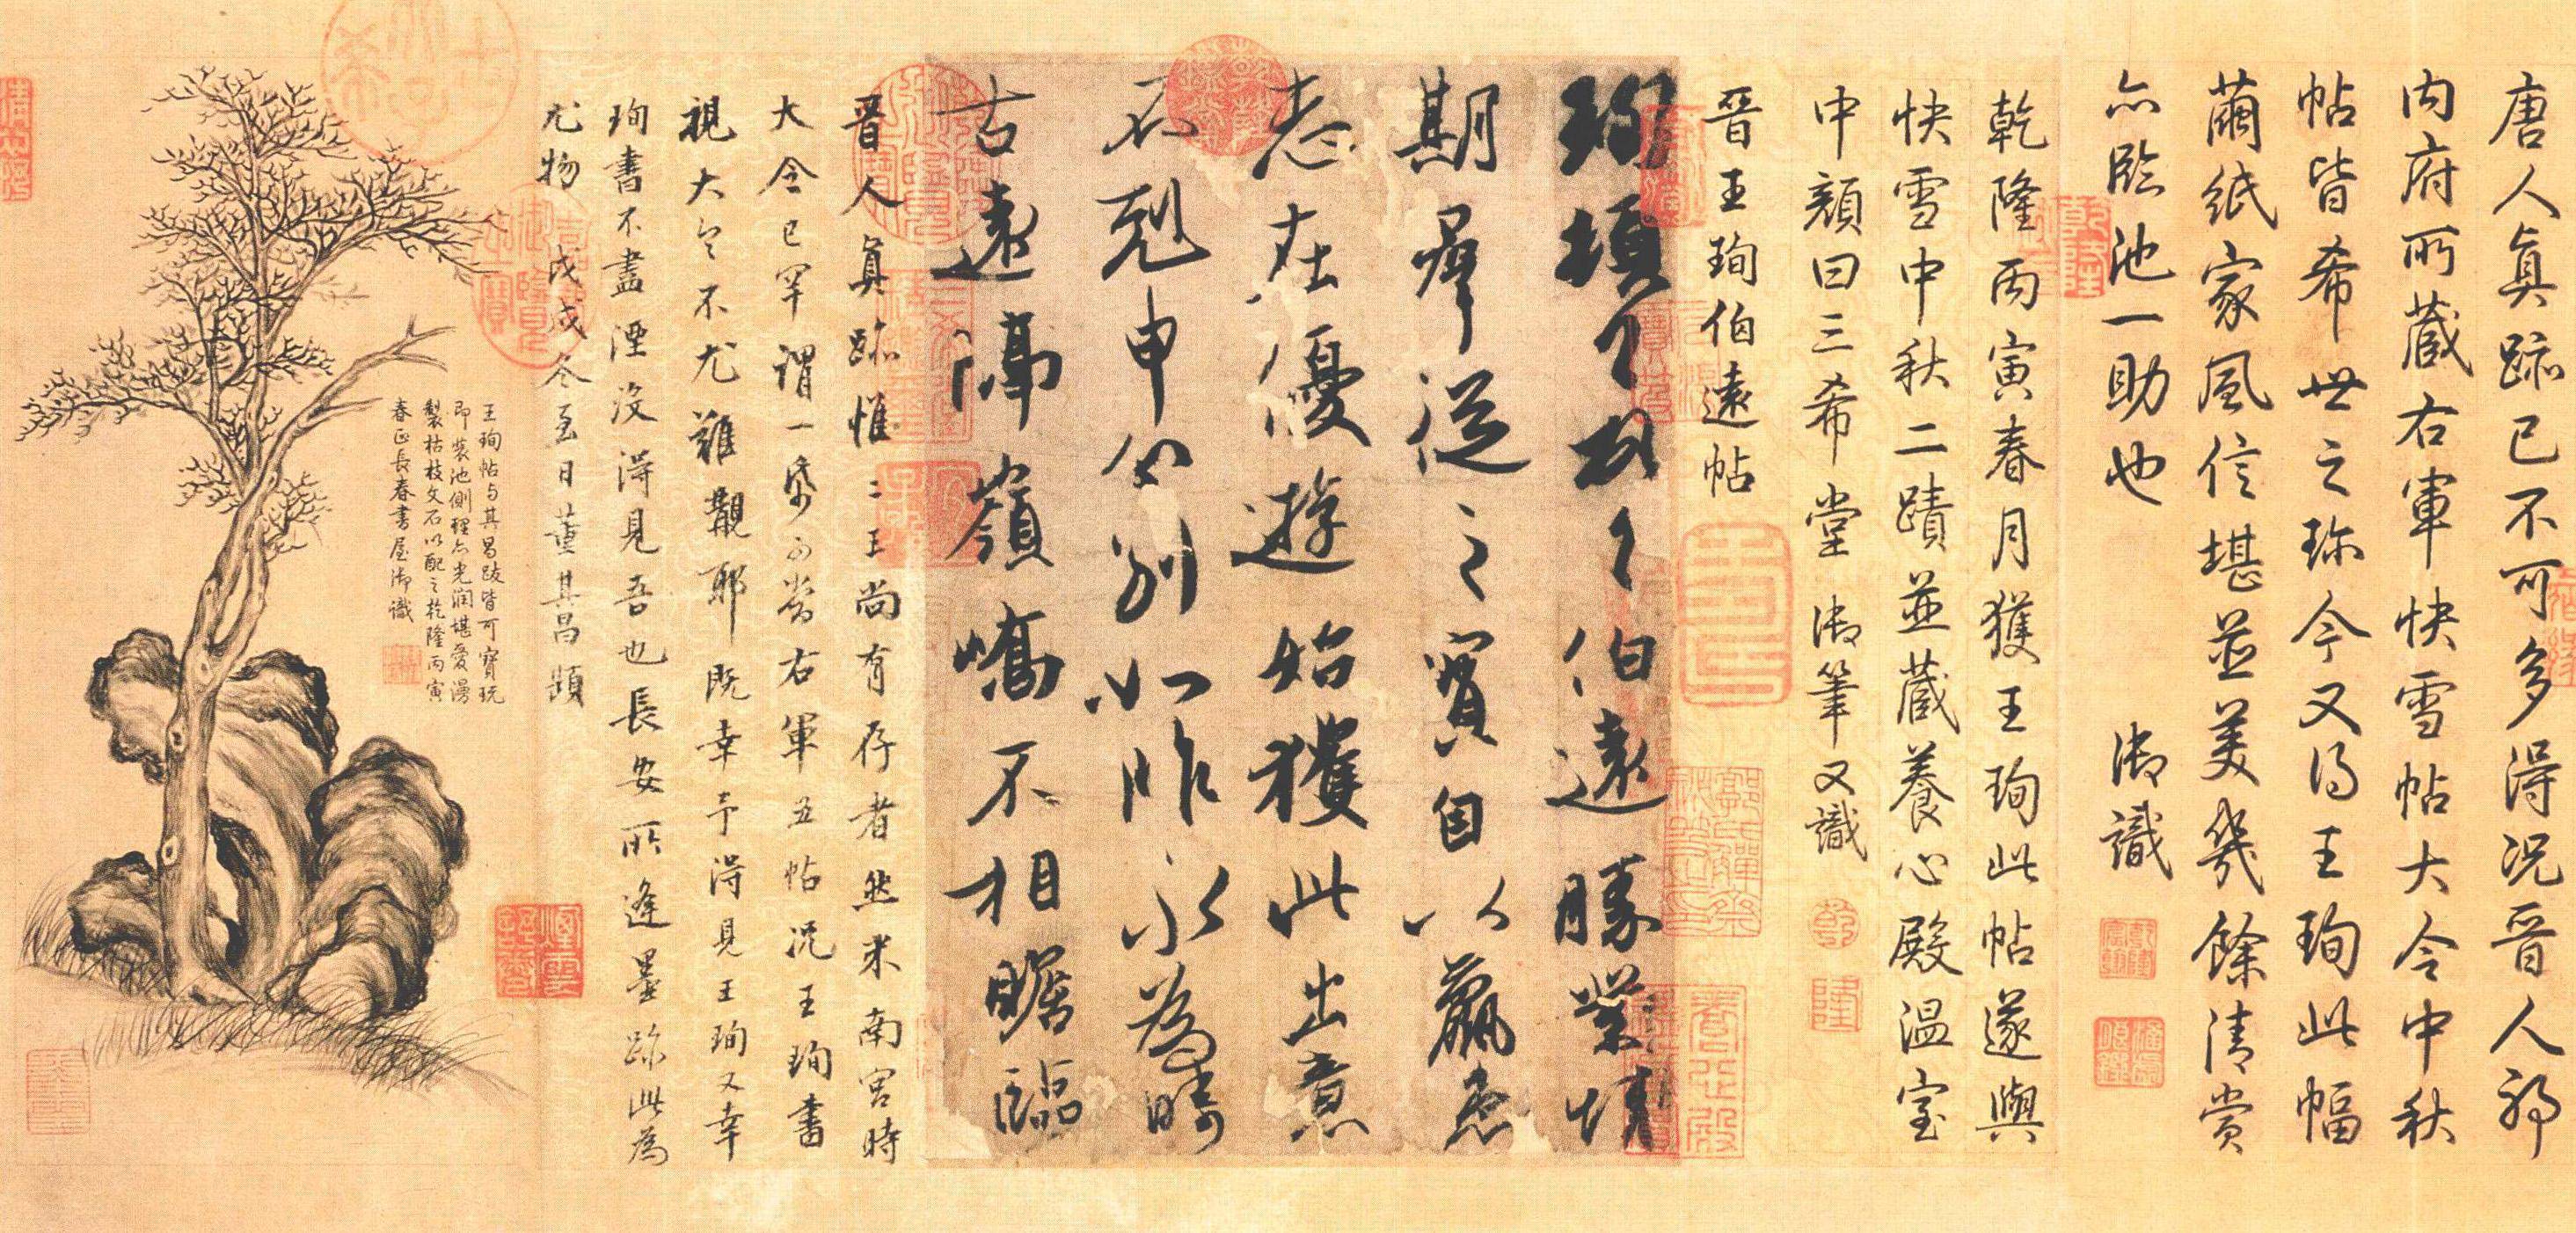 唐人真跡已不可多得況晉人耶
內府所藏右軍快雪帖大令中秋
帖皆希世之珍今又得王珣此幅
繭紙家風信堪並美幾餘清賞
亦臨池一助也 御識
乾隆丙寅春月獲王珣此帖遂與
快雪中秋二蹟並藏養心殿溫室
中顏曰三希堂 御筆又識
晉王珣伯遠帖
珣頓首頓首伯遠勝業情
期群從之寶自以羸患
志在優遊始獲此出意
不剋申分別如昨永為疇
古遠隔嶺嶠不相瞻臨
晉人真跡惟二王尚有存者然米南宮時
大令已罕謂一紙可當右軍五帖況王珣書
視大令不尤難覯耶既幸予得見王珣又幸
珣書不盡湮沒得見吾也長安所逢墨跡此為
尤物 戊戌冬至日董其昌題
王珣帖與其昌跋皆可寶玩
即裝池側理亦光潤堪愛漫
製枯枝文石以配之乾隆丙寅
春正長春書屋御識